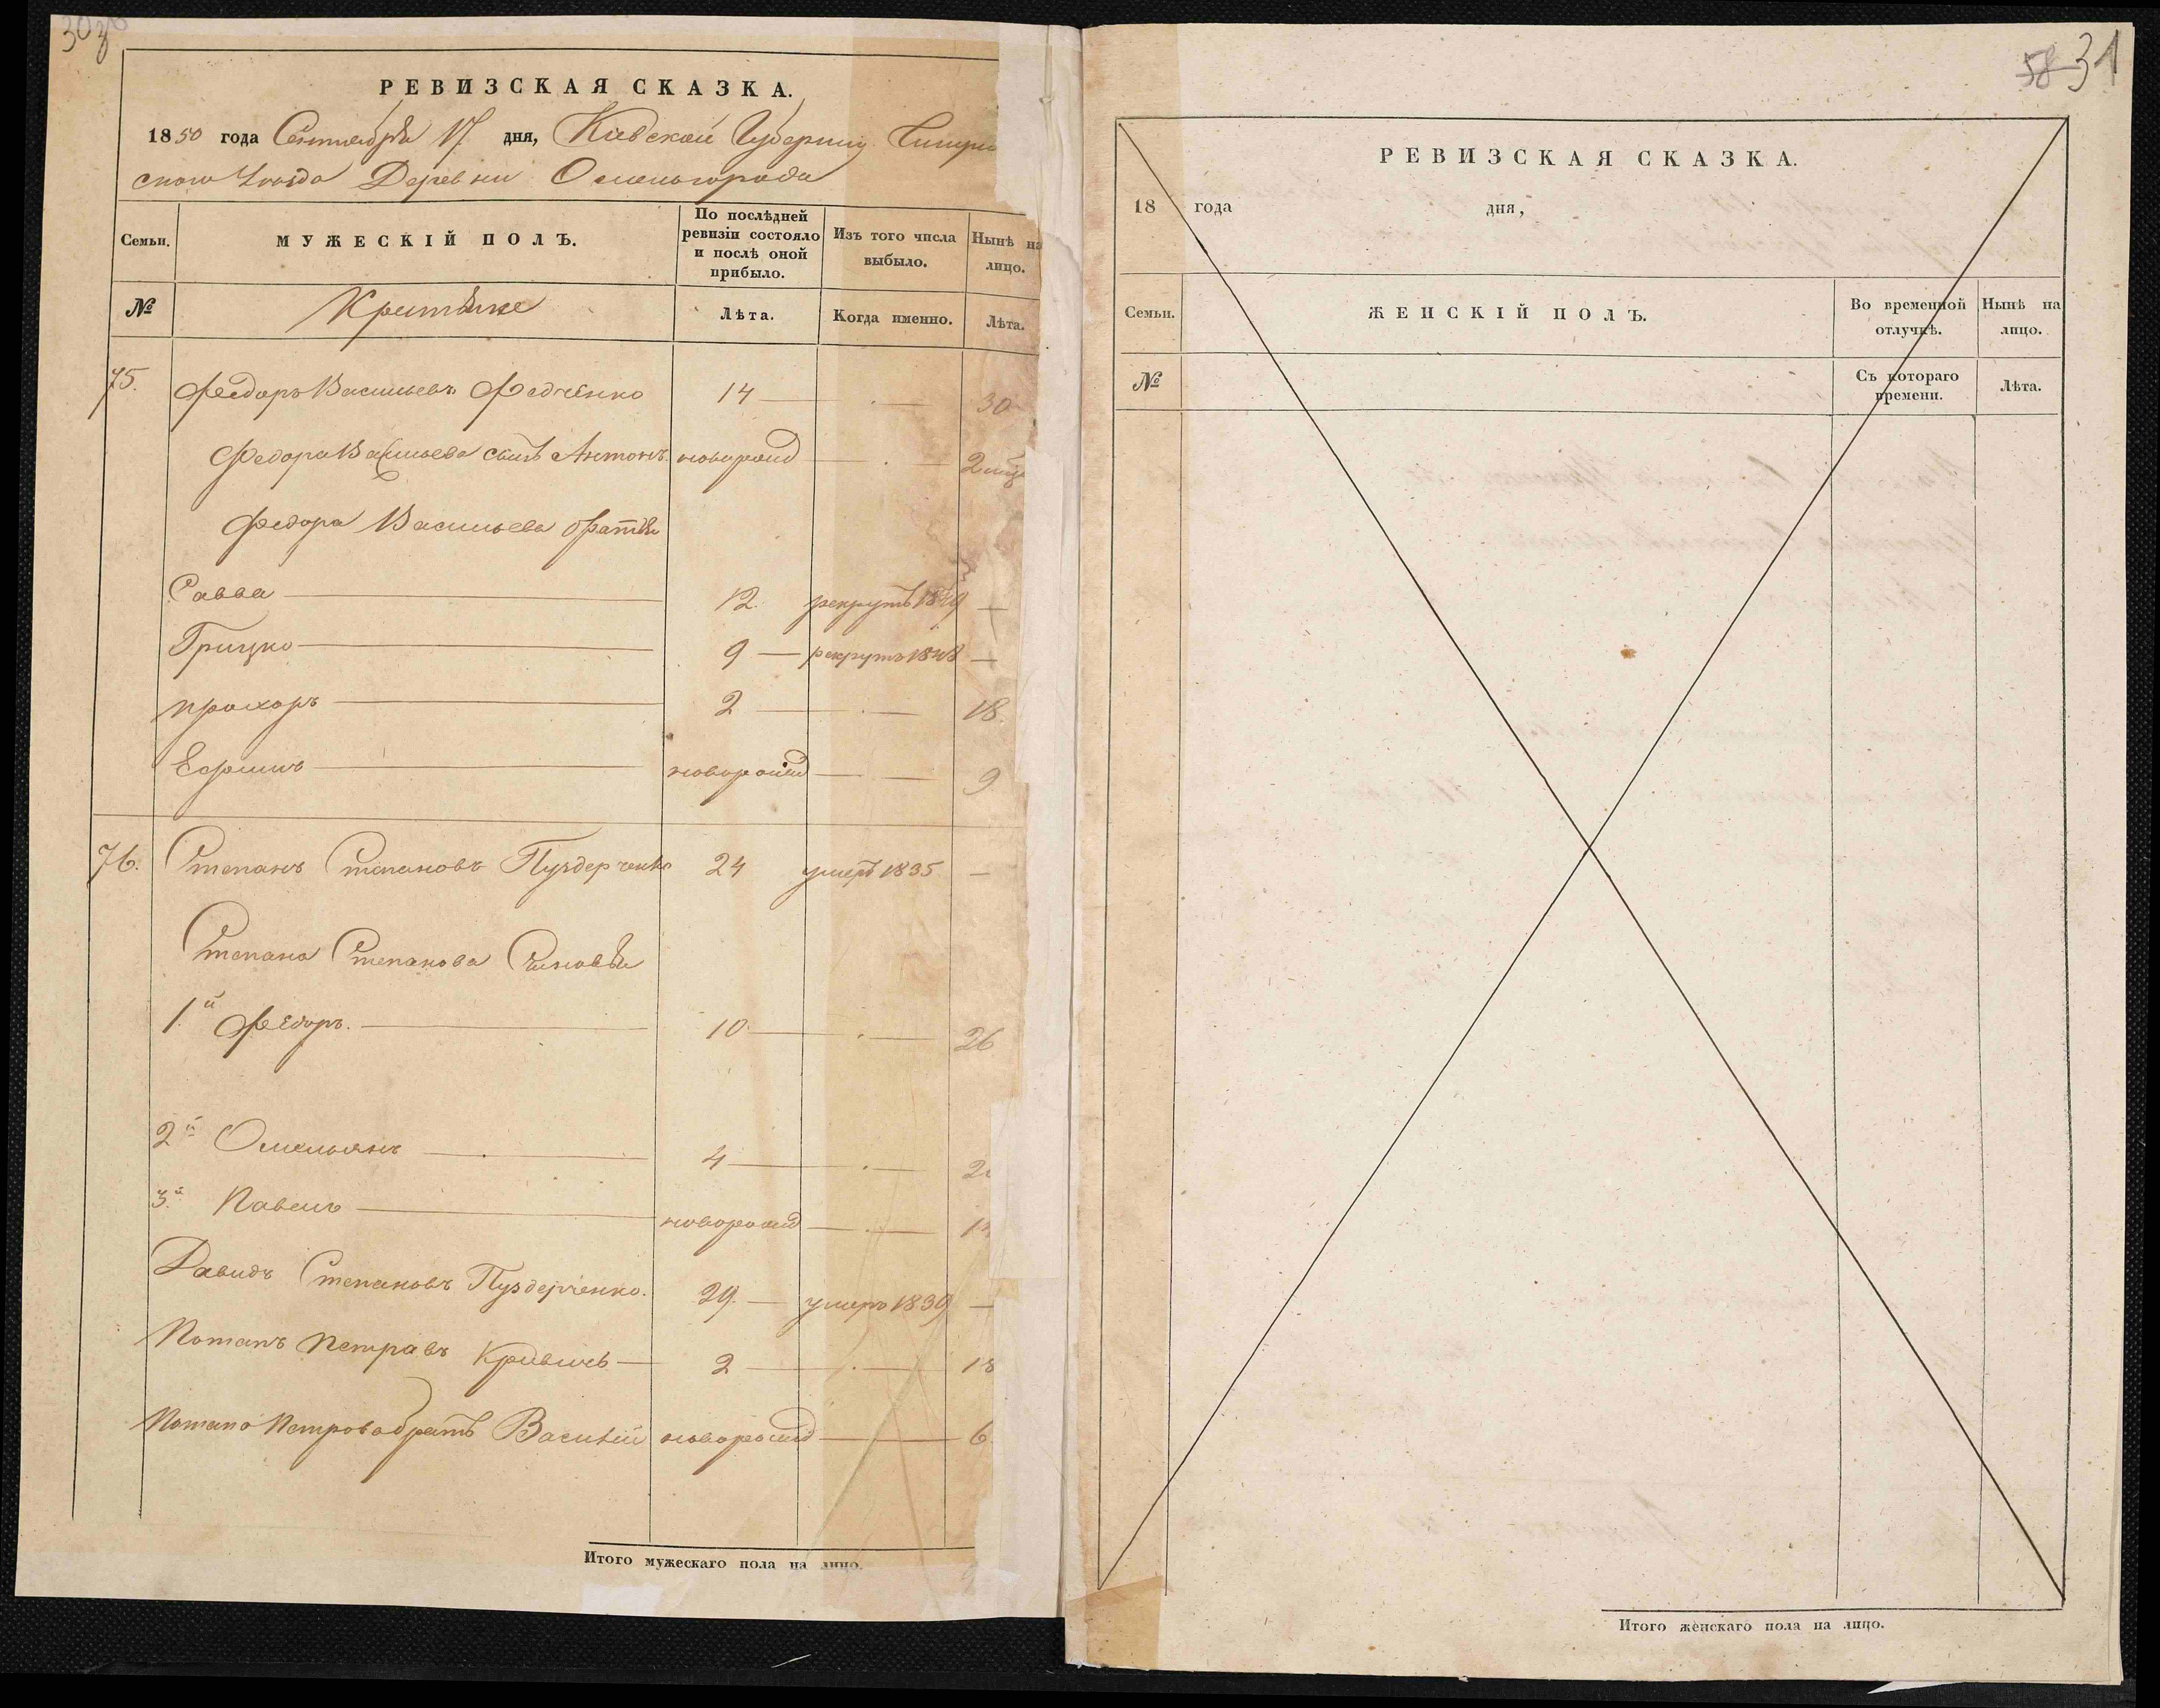 30зв
РЕВИЗСКАЯ СКАЗКА.
1850 года Сентября 17 дня, Киевской Губернiи Чигри
ского Уезда Деревни Осипогорода
Семьи. МУЖЕСКІЙ ПОЛЪ. По послѣдней ревизіи состояло и послѣ оной прибыло. Изъ того числа выбыло. Нынѣ на лицо.
№ Лѣта. Когда именно. Лѣта.
75. Федоръ Васильевъ Федченко 14 — 30
Федора Васильева сынъ Антонъ новорожд — 2 мѣс
Федора Васильева братья
Савва 12. рекрутъ 1849 —
Грицко 9 — рекрутъ 1848 —
Прохоръ 2 — 18.
Ефимъ новорожд — 9
76. Степанъ Степановъ Пуздерченко 24 умеръ 1835 —
Степана Степанова Сыновья
1й Федоръ. 10 — 26
2й Омельянъ 4 — 2
3й Павелъ новорожд — 1
Давидъ Степановъ Пуздерченко. 29. — умеръ 1839 —
Потапъ Петровъ 2 — 18
Потапа Петрова братъ Василій новорожд — 6
Итого мужескаго пола на лицо.
58 31
РЕВИЗСКАЯ СКАЗКА.
18 года дня,
Семьи. ЖЕНСКІЙ ПОЛЪ. Во временной отлучкѣ. Нынѣ на лицо.
№ Съ котораго времени. Лѣта.
Итого женскаго пола на лицо.